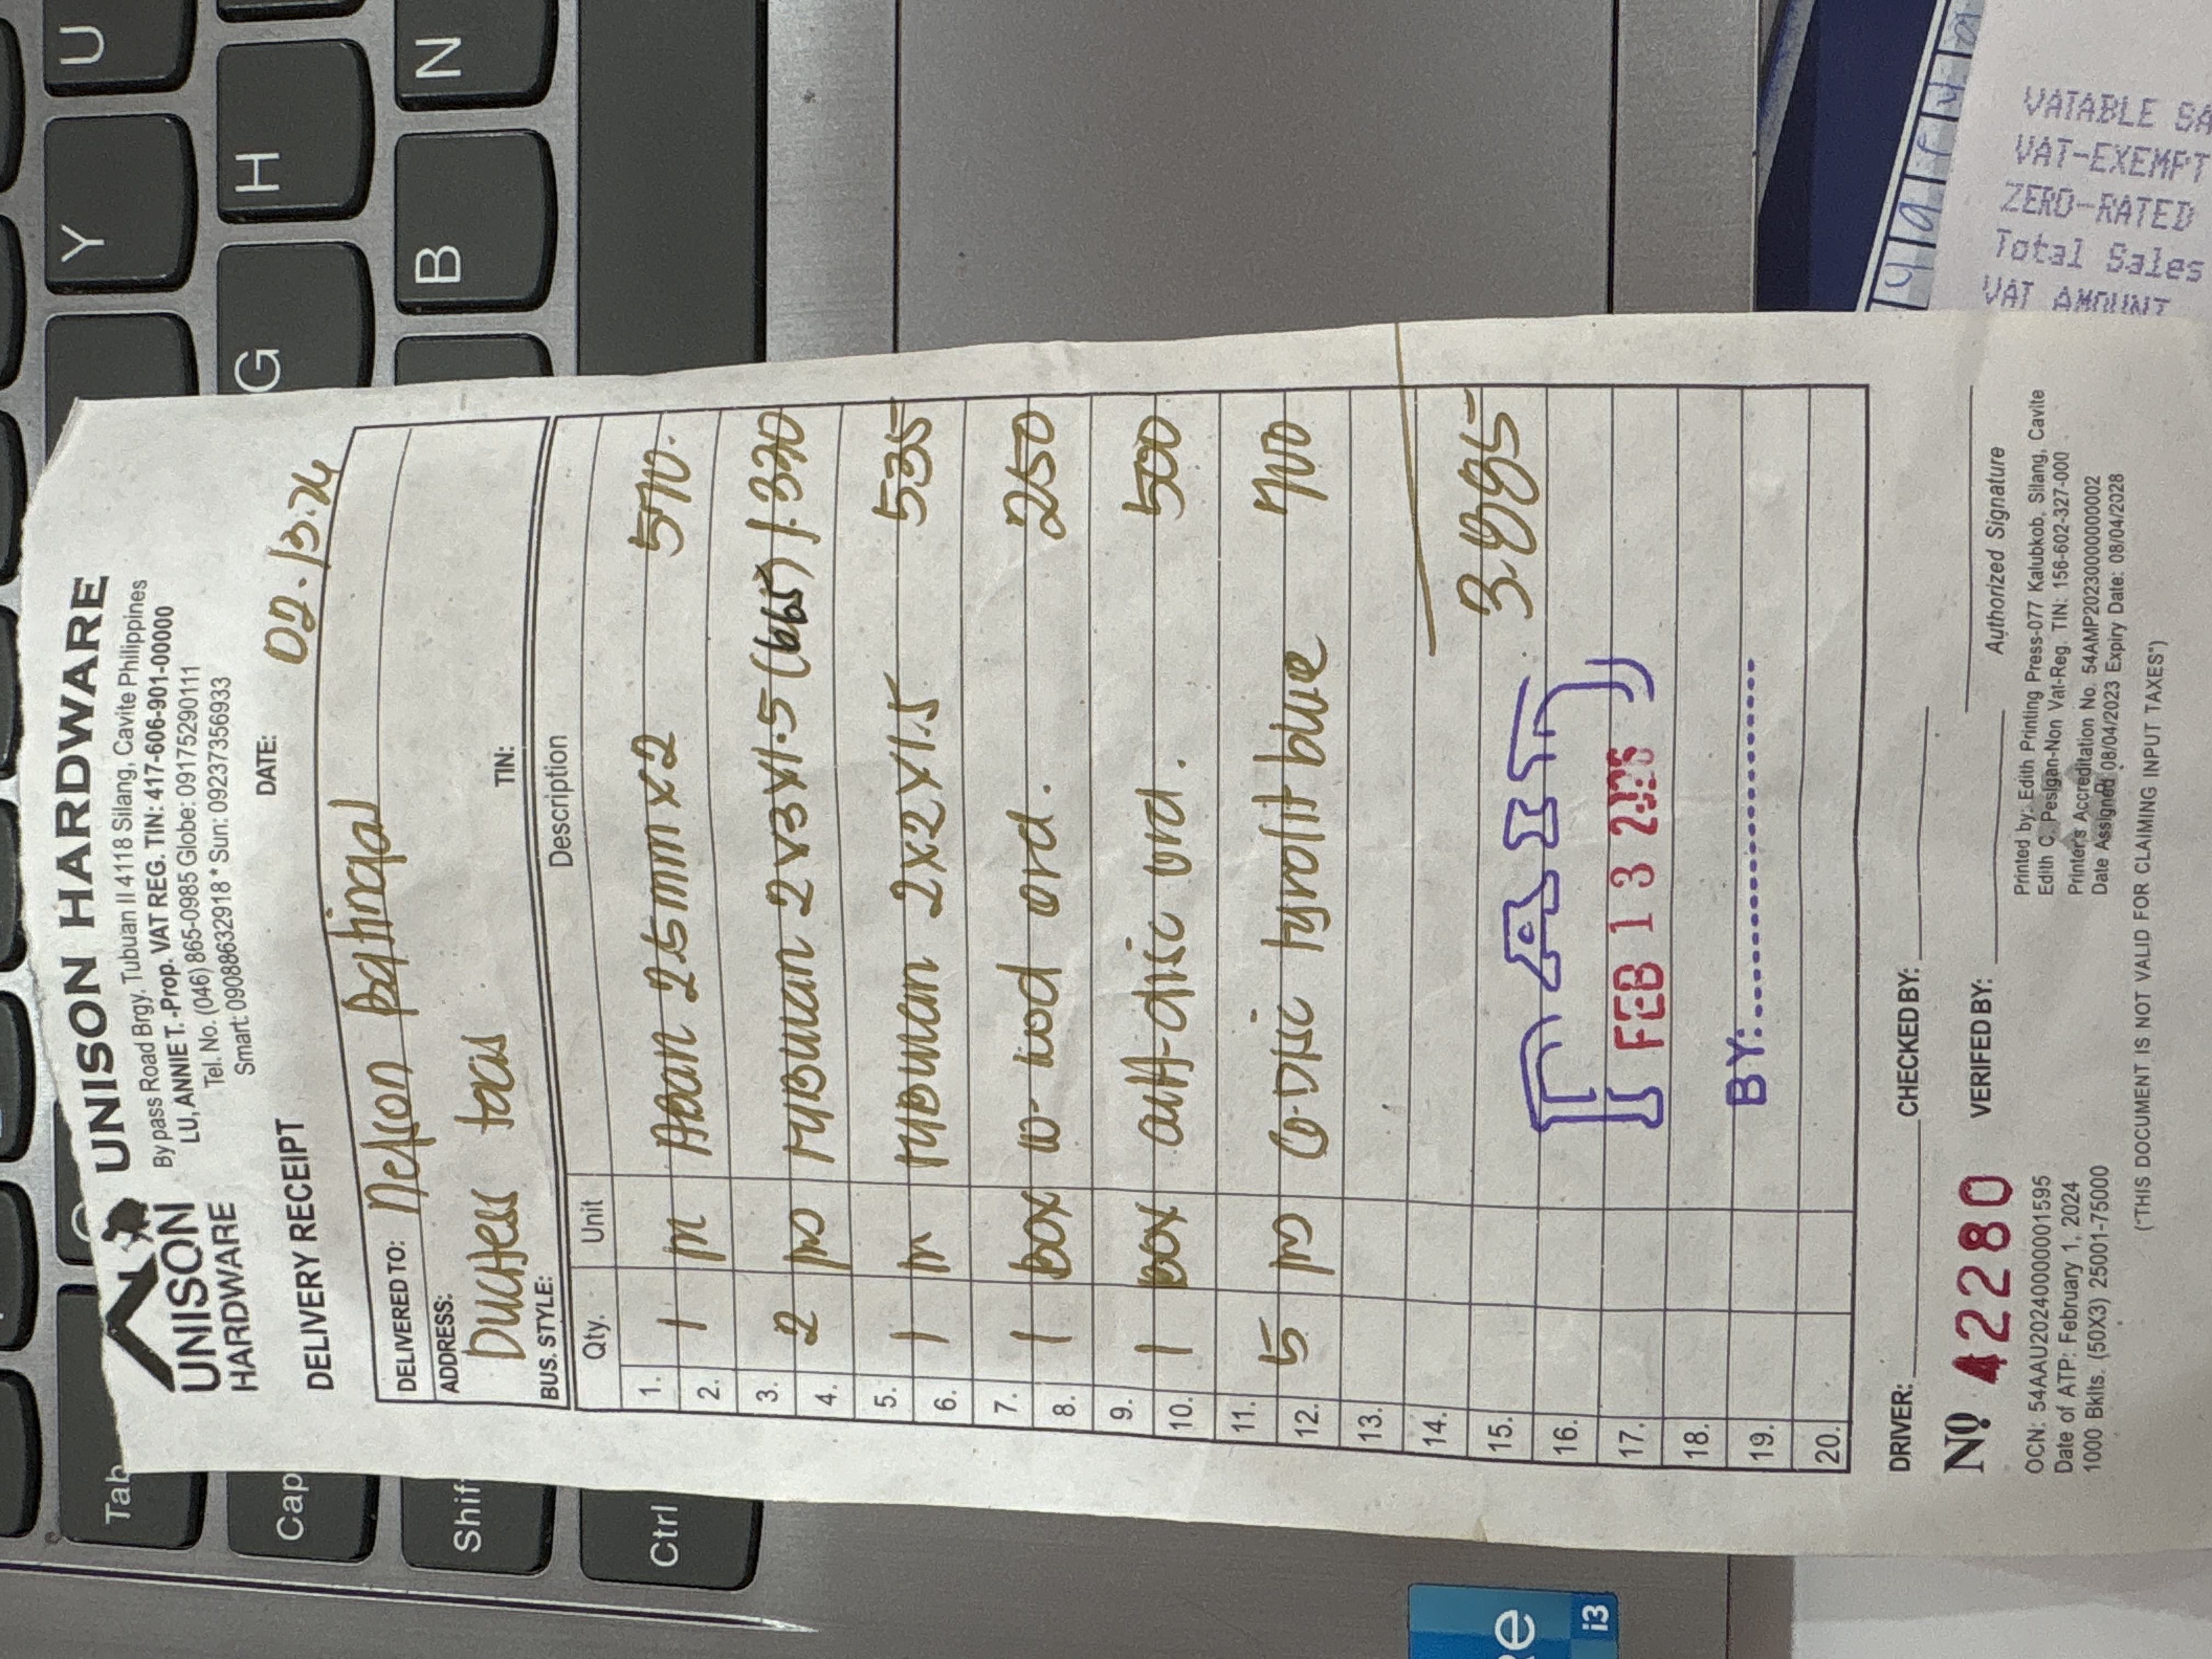 UNISON HARDWARE
UNISON
HARDWARE
By pass Road Brgy. Tubuan II 4118 Silang, Cavite Philippines
LU, ANNIE T. -Prop. VAT REG. TIN: 417-606-901-00000
Tel. No. (046) 865-0985 Globe: 09175290111
Smart: 09088632918 * Sun: 09237356933
DELIVERY RECEIPT
DATE: 02.13.26
DELIVERED TO: Nelson
ADDRESS:
Duchess
BUS. STYLE: TIN:
Qty. Unit Description
1.
2. 1 25mm x 2 570.
3.
4. 2 2x3x1.5 (665) 1.330
5.
6. 1 2x2x1.5 535
7.
8. 1 box 250
9.
10. 1 box 500
11.
12. 5 tyrolit blue 700
13.
14.
15. 3.885
16. PAID
17. FEB 13 2026
18.
19. BY:
20.
DRIVER: CHECKED BY:
Nº 42280 VERIFED BY:
Authorized Signature
OCN: 54AAU20240000001595
Date of ATP: February 1, 2024
1000 Bklts. (50X3) 25001-75000
Printed by: Edith Printing Press-077 Kalubkob, Silang, Cavite
Edith C. Pesigan-Non Vat-Reg. TIN: 156-602-327-000
Printer's Accreditation No. 54AMP20230000000002
Date Assigned 08/04/2023 Expiry Date: 08/04/2028
("THIS DOCUMENT IS NOT VALID FOR CLAIMING INPUT TAXES")
VATABLE SA
VAT-EXEMPT
ZERO-RATED
Total Sales
VAT AMOUNT
Tab
Cap
Shif
Ctrl
U
Y
H
G
N
B
i3